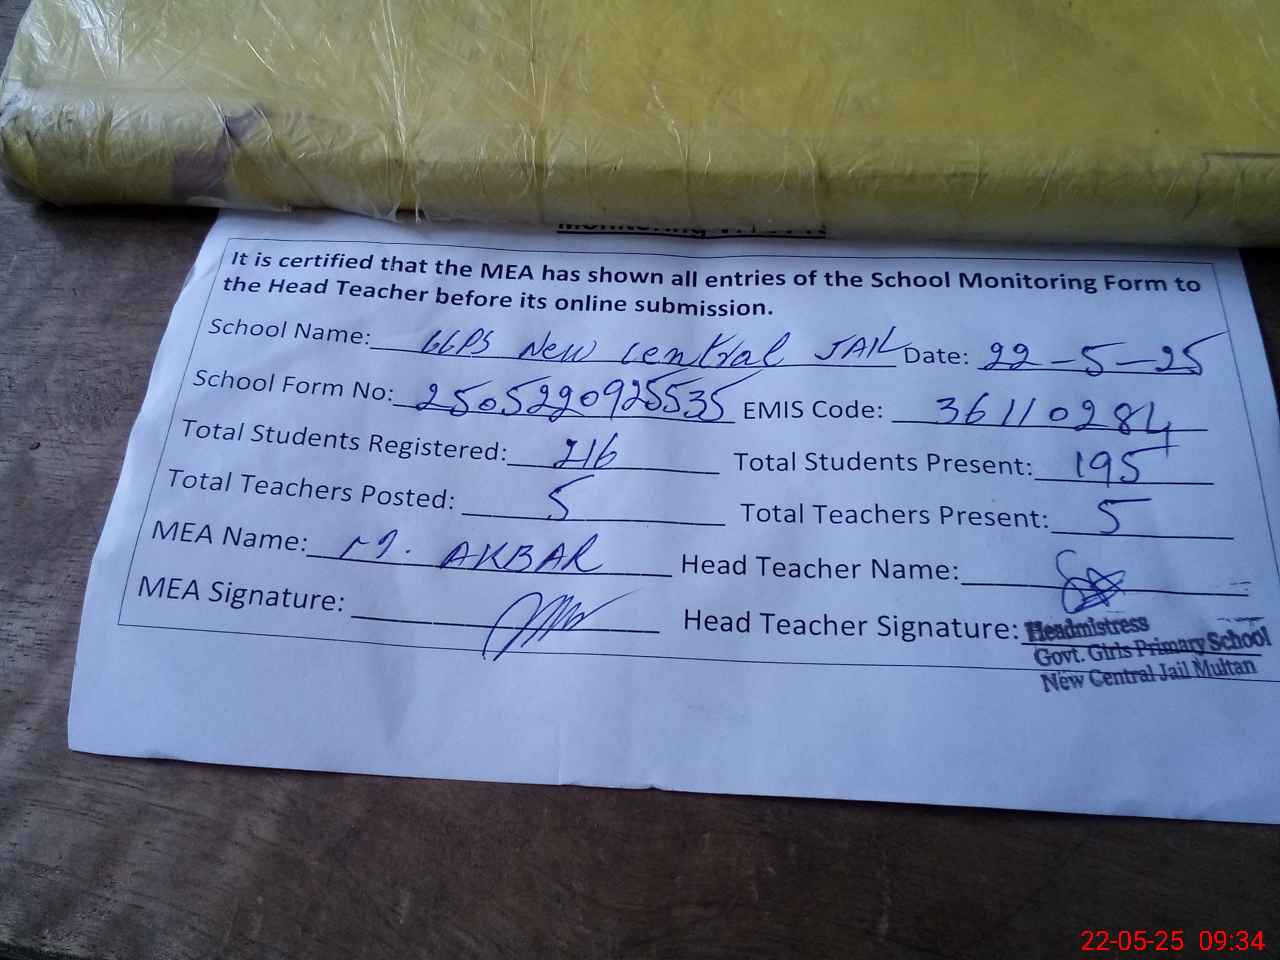 It is certified that the MEA has shown all entries of the School Monitoring Form to
the Head Teacher before its online submission.
School Name: GGPS New Central JAIL Date: 22-5-25
School Form No: 2505220925535 EMIS Code: 36110284
Total Students Registered: 216 Total Students Present: 195
Total Teachers Posted: 5 Total Teachers Present: 5
MEA Name: M. AKBAR Head Teacher Name:
MEA Signature: Head Teacher Signature:
Headmistress
Govt. Girls Primary School
New Central Jail Multan
22-05-25 09:34